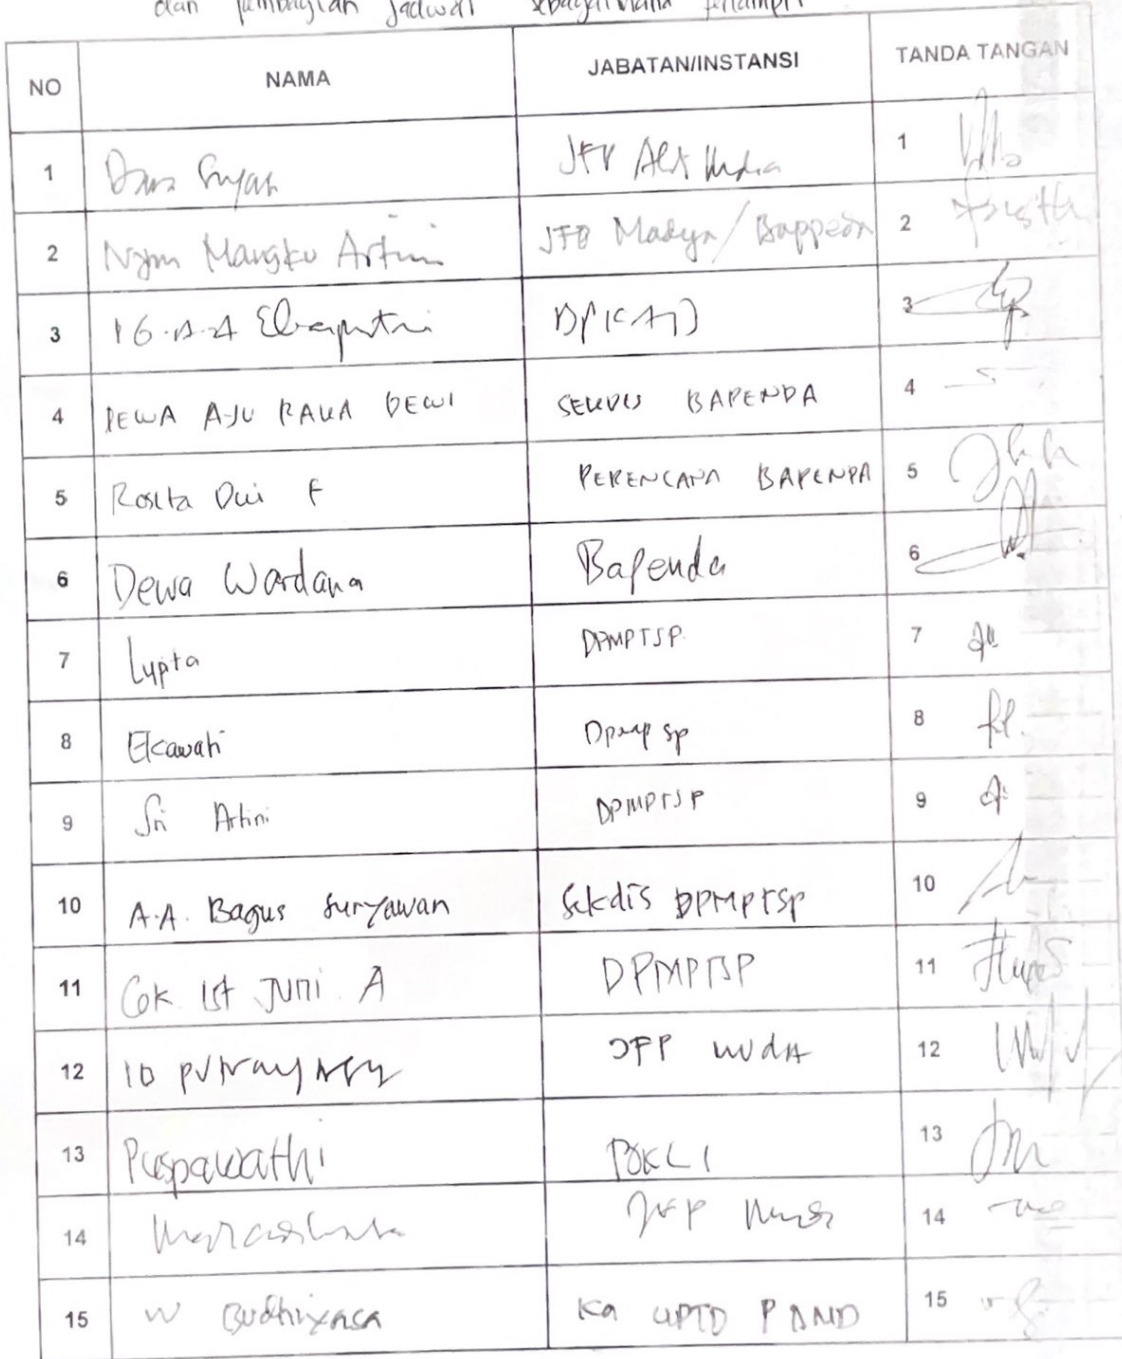 dan pembagian jadwal sebagaimana terlampir
NO NAMA JABATAN/INSTANSI TANDA TANGAN
1 JFP 1
2 Nym Mangku Artini JFP Madya/Bappeda 2
3 BPKAD 3
4 DEWA AJU RAKA DEWI SEKDIS BAPENDA 4
5 Rosita Dwi F PERENCANA BAPENDA 5
6 Dewa Wardana Bapenda 6
7 Lupta DPMPTSP 7
8 Ekawati 8
9 Sri Artini DPMPTSP 9
10 A.A. Bagus Suryawan Sekdis DPMPTSP 10
11 Cok Ist Juni A DPMPTSP 11
12 JFP MUdA 12
13 Puspawathi 13
14 JFP 14
15 W Budhiyasa Ka UPTD 15